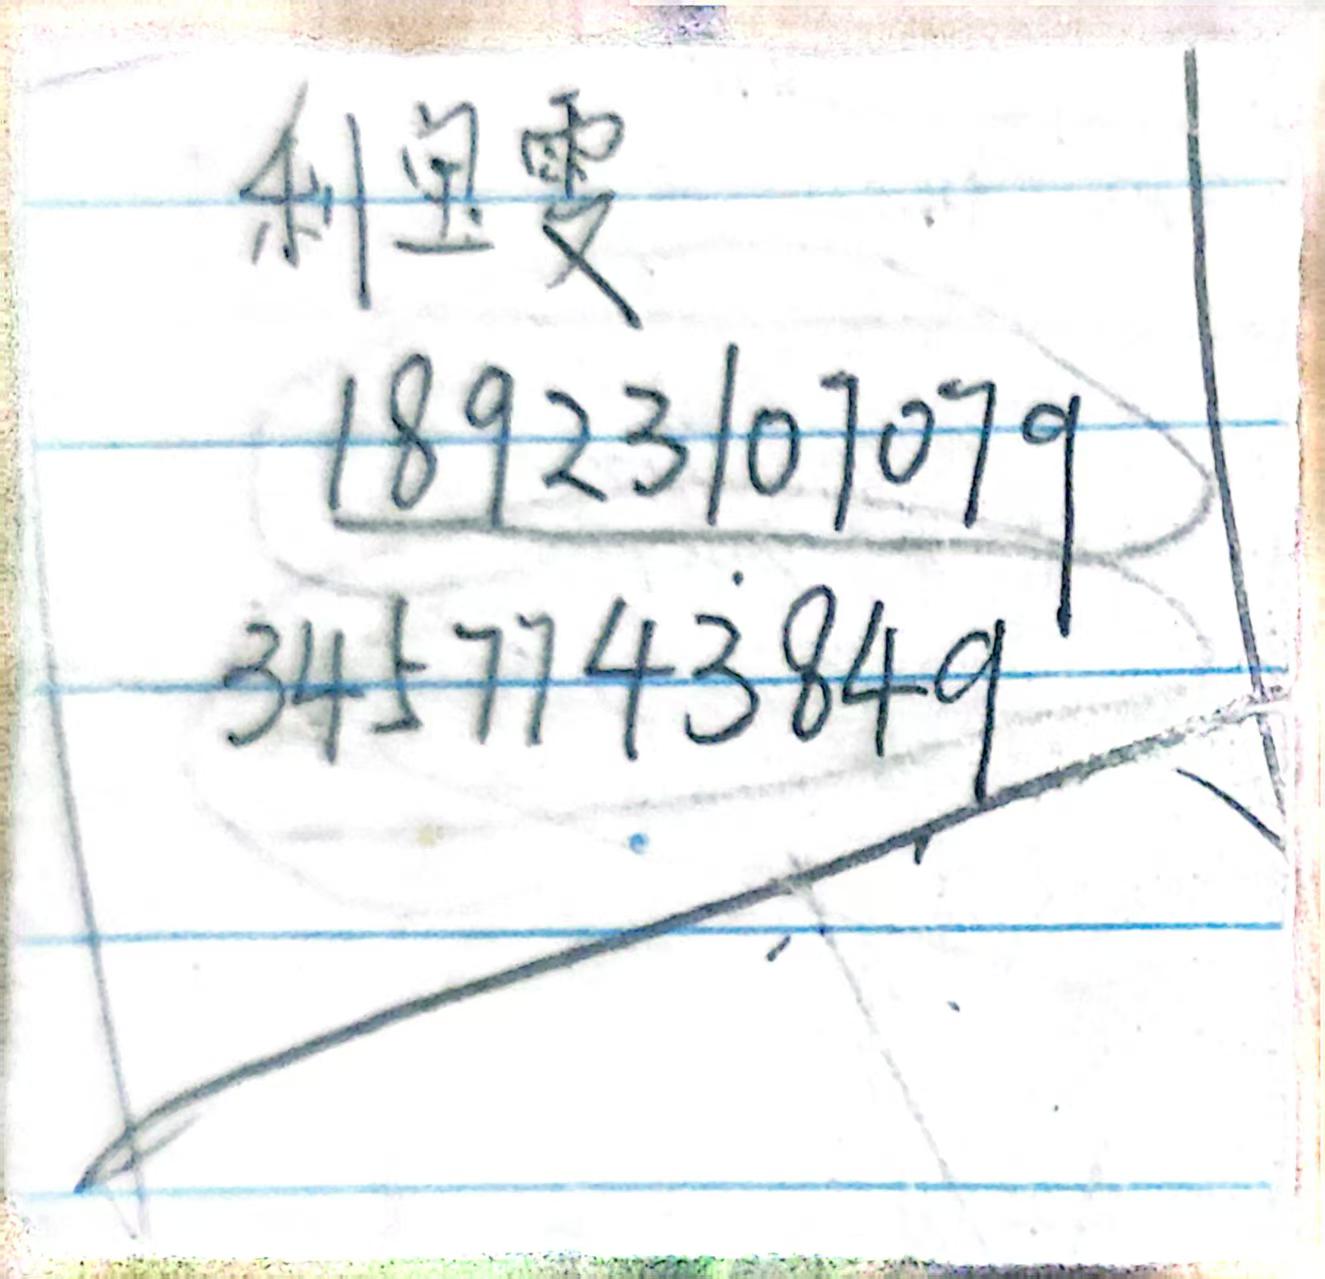 18923107079
3457743849